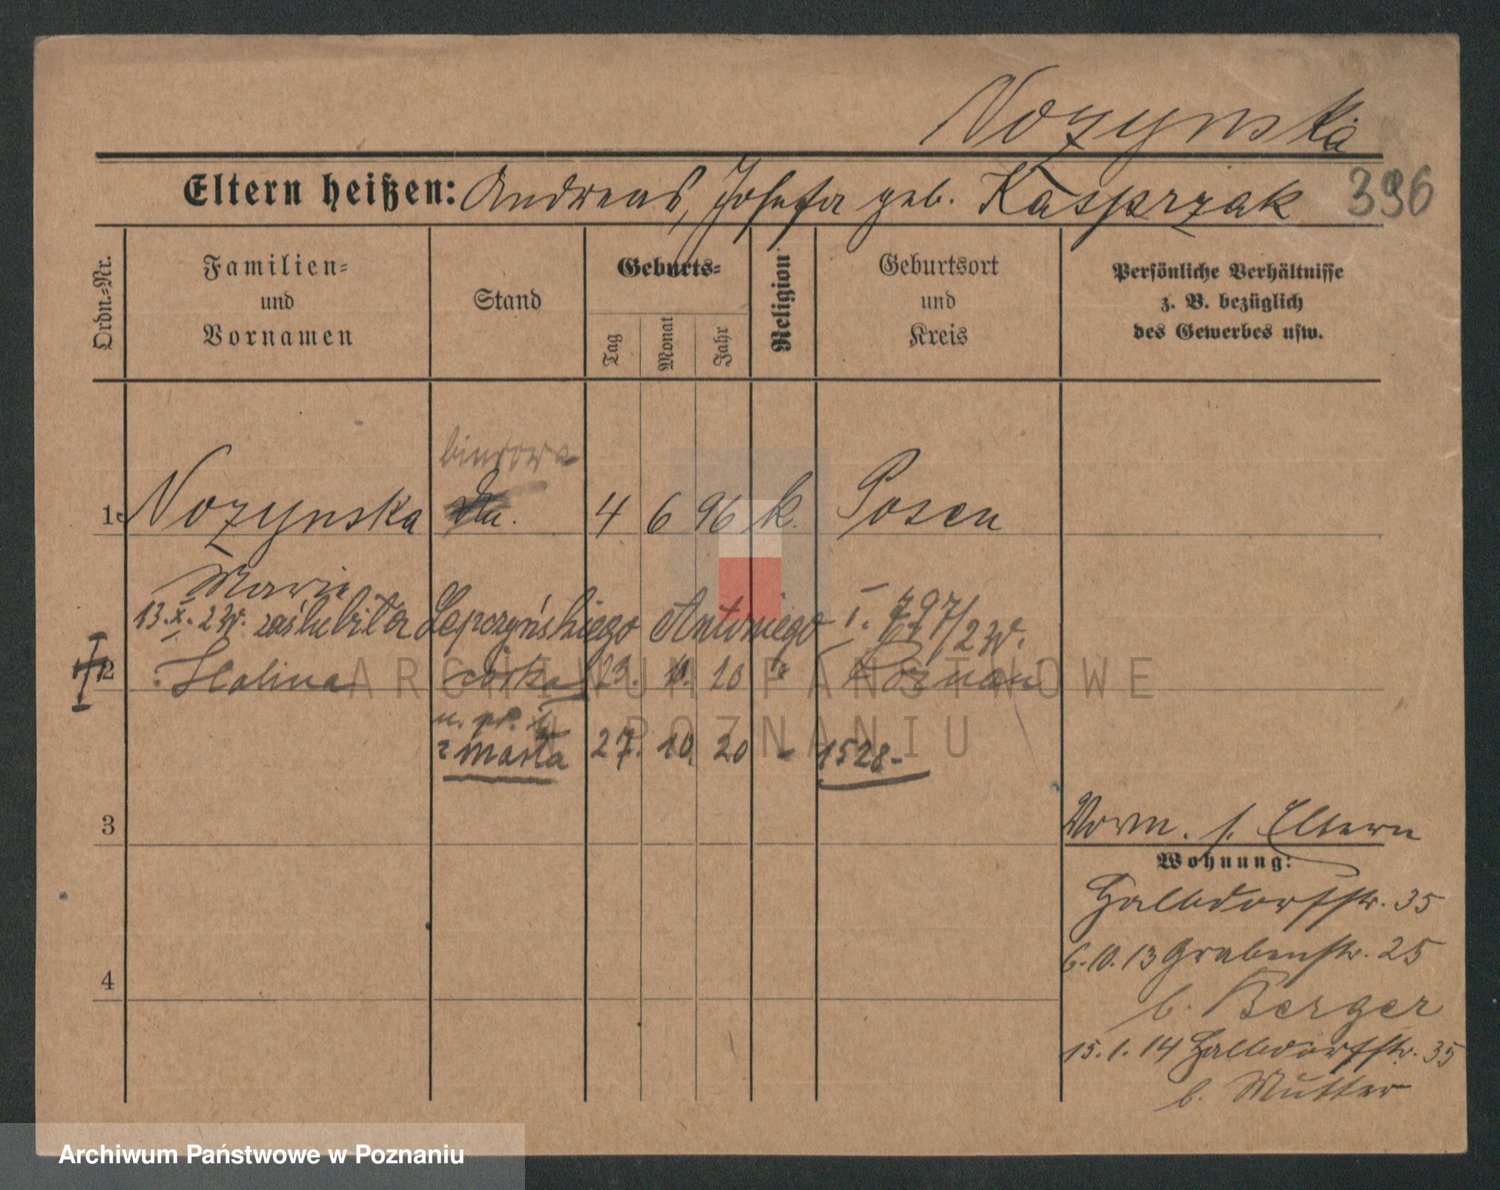 Nozynska
Eltern heißen: Andreas, Josefa geb. Kasprzak 396
Ordn.=Nr.
Familien=
und
Vornamen
Stand
Geburts=
Tag
Monat
Jahr
Religion
Geburtsort
und
Kreis
Persönliche Verhältnisse
z. B. bezüglich
des Gewerbes usw.
biurowa
1 Nozynska 4 6 96 k. Posen
Marie
13.X.23r. zaślubiła Lepczyńskiego Antoniego I. 797/23r.
2 Halina córka 23. 10. 20 " Poznań
zmarła 27. 10. 20 - 1528-
3
Vorm. s. Eltern
Wohnung:
Halbdorfstr. 35
6.10.13 Grabenstr. 25
b. Berger
4
15.1.14 Halbdorfstr. 35
b. Mutter
ARCHIWUM PAŃSTWOWE
W POZNANIU
Archiwum Państwowe w Poznaniu